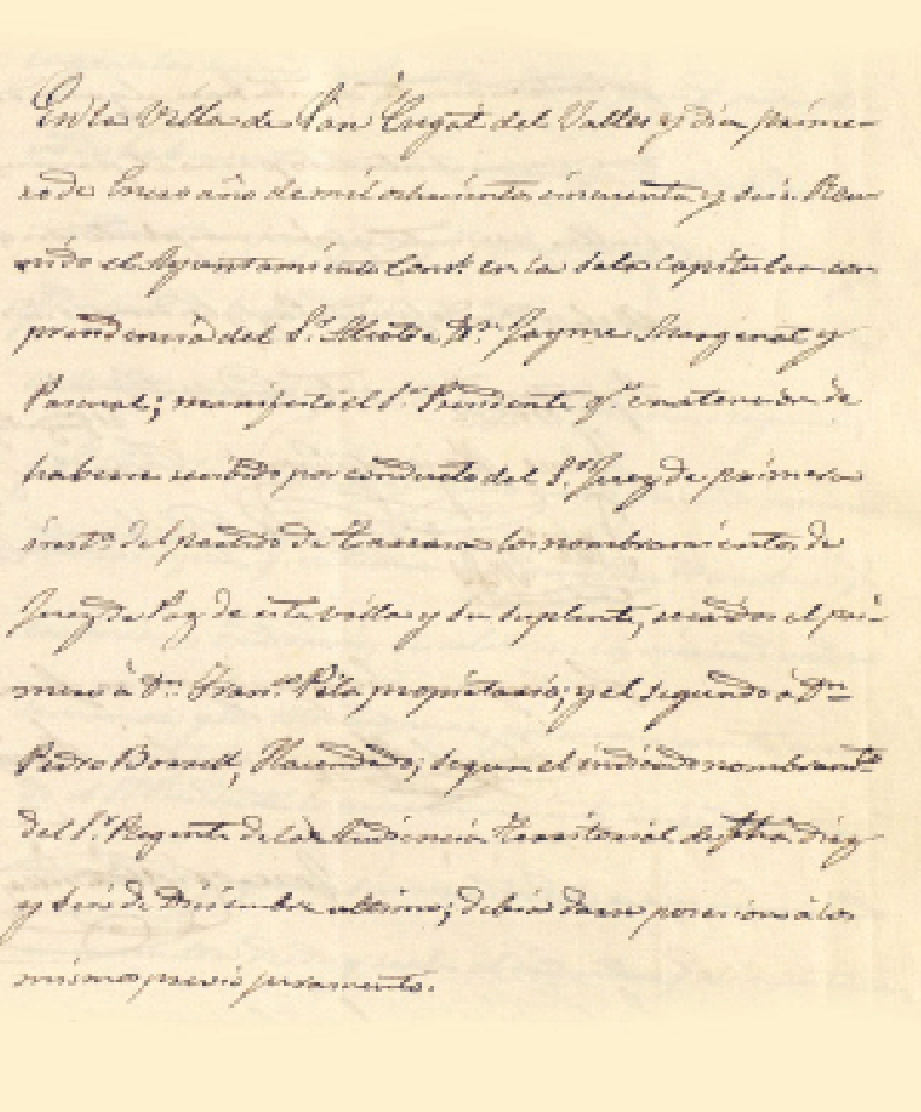 En la Villa de San Cugat del Valles y dia prime-
ro de Enero año de mil ochocientos cincuenta y seis. Reu-
nido el Ayuntamiento Const. en la Sala Capitular con
presidencia del Sr. Alcalde Dn. Jayme Margenat y
Pascual; manifestó el Sr. Presidente qe. en atencion de
haberse recibido por conducto del Sr. Juez de primera
inst.a del partido de Tarrasa los nombramientos de
Juez de Paz de esta villa y su suplente, recaidos el pri-
mero á Dn. Fran.co Pila propietario; y el segundo á Dn.
Pedro Borrell, Hacendado; segun el indicado nombram.to
del Sr. Regente de la Audiencia Territorial de fha. diez
y seis de Diciembre ultimo; debia darse posesion á los
mismos previo juramento.